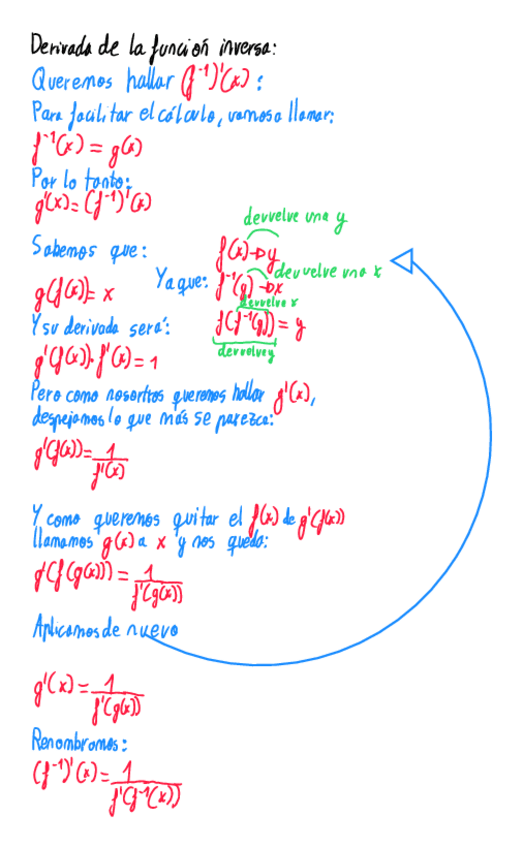 Derivada de la función inversa:
Queremos hallar (f⁻¹)'(x):
Para facilitar el cálculo, vamos a llamar:
f⁻¹(x) = g(x)
Por lo tanto:
g'(x) = (f⁻¹)'(x)
Sabemos que:
g(f(x)) = x
Ya que:
devuelve una y
f(x)→y
devuelve una x
f⁻¹(y)→x
devuelve x
f(f⁻¹(y)) = y
devuelve y
Y su derivada será:
g'(f(x))·f'(x) = 1
Pero como nosotros queremos hallar g'(x),
despejamos lo que más se parezca:
g'(f(x)) = 1/f'(x)
Y como queremos quitar el f(x) de g'(f(x))
llamamos g(x) a x y nos queda:
g'(f(g(x))) = 1/f'(g(x))
Aplicamos de nuevo
g'(x) = 1/f'(g(x))
Renombramos:
(f⁻¹)'(x) = 1/f'(f⁻¹(x))